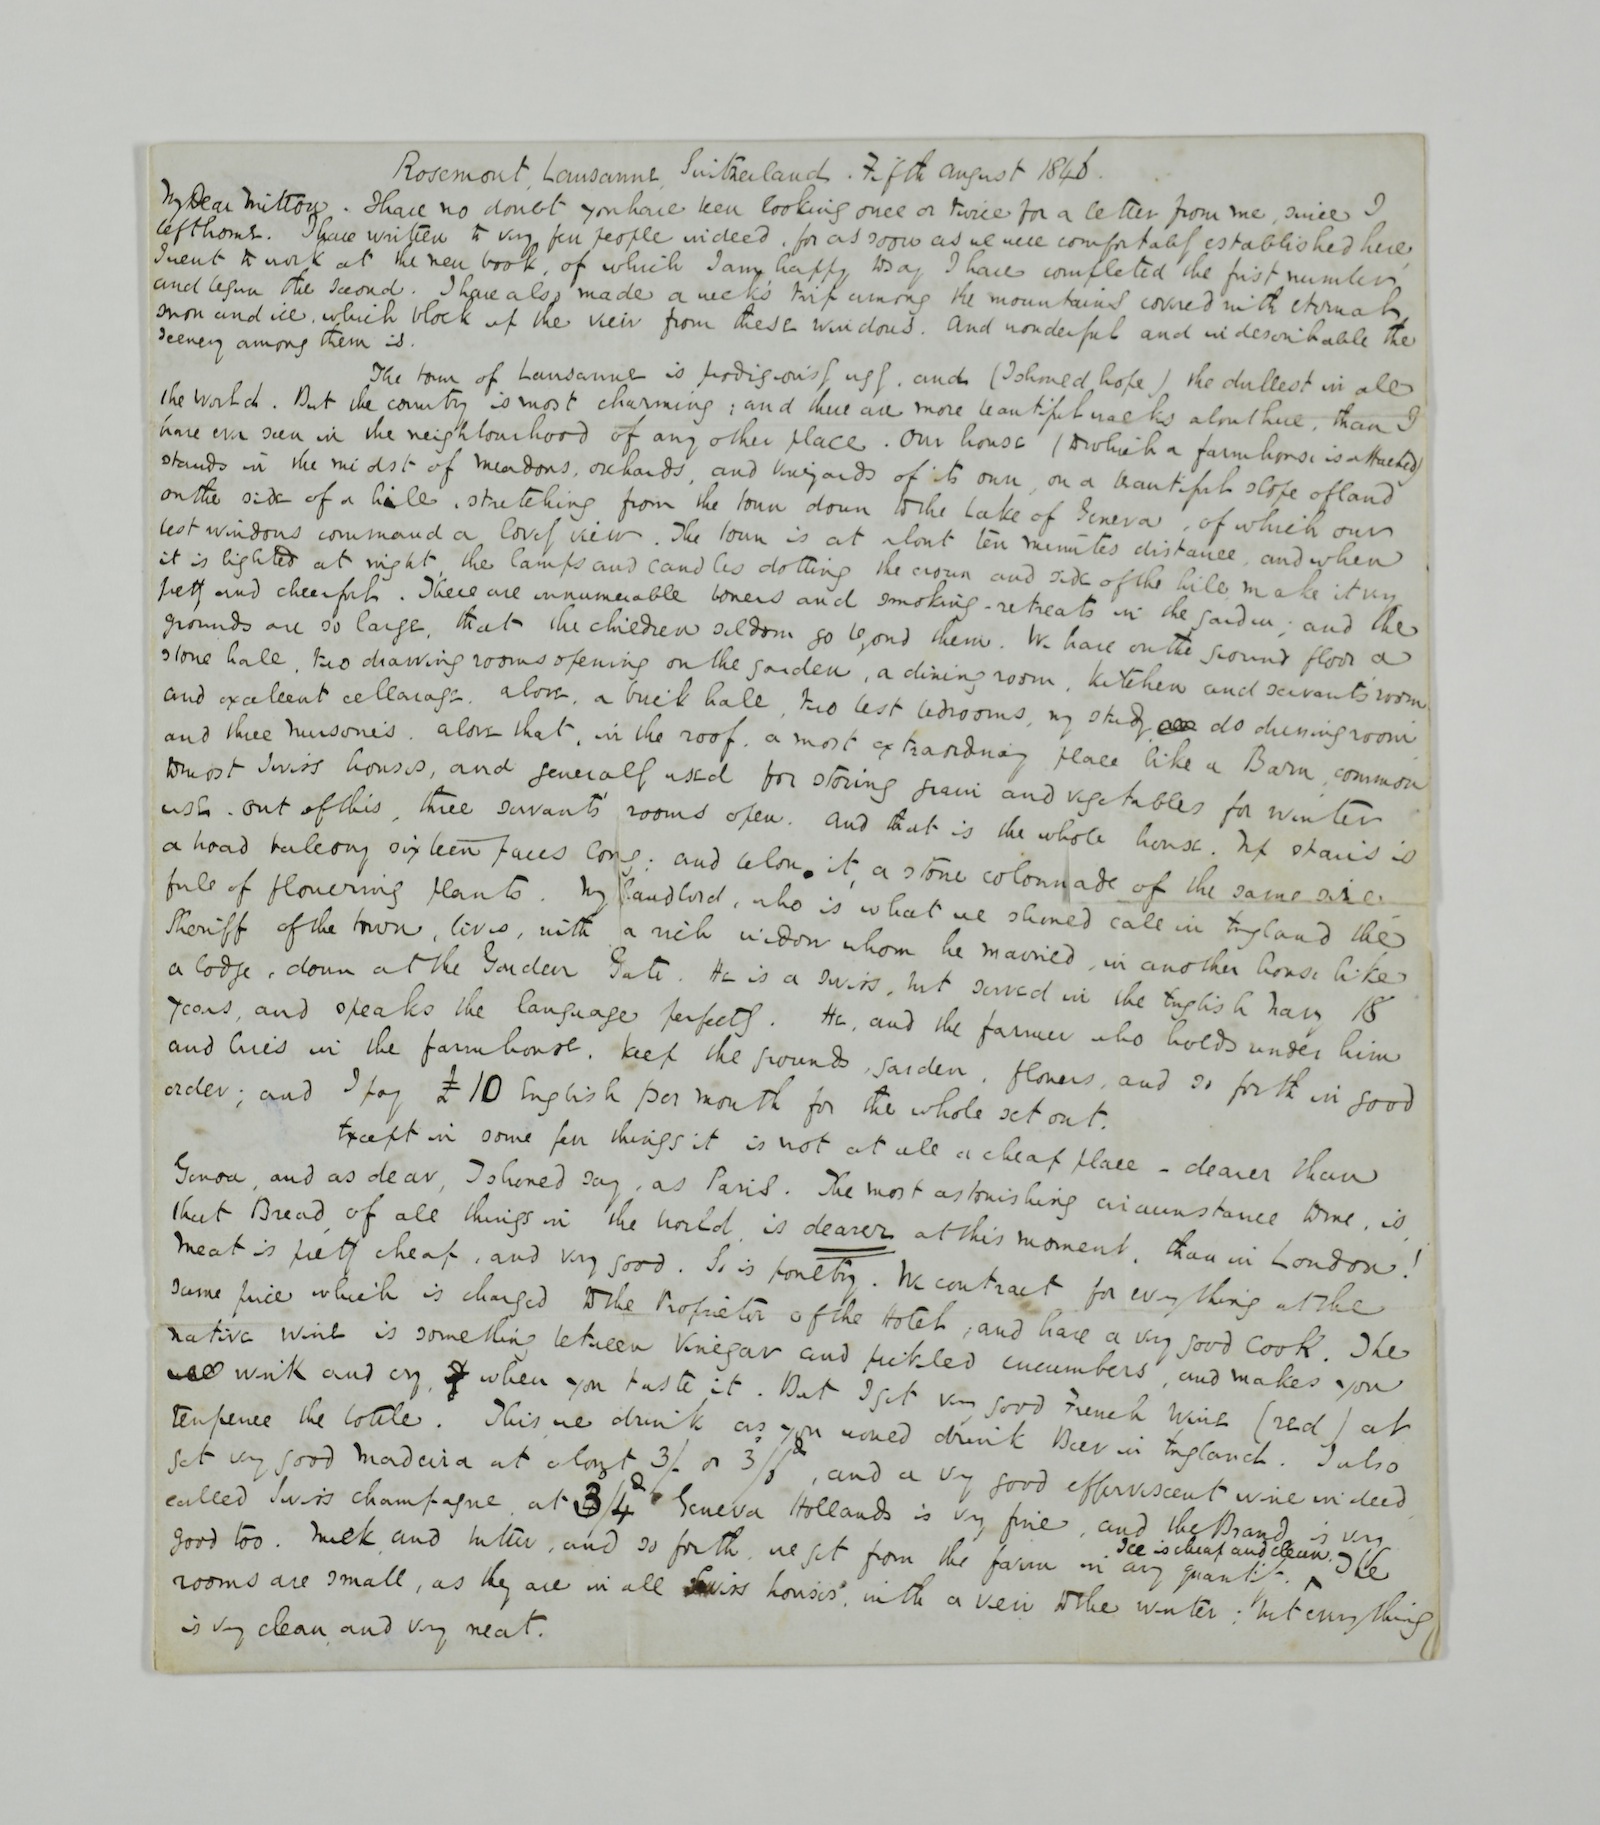 Rosemont, Lausanne, Switzerland. Fifth August 1846.
My Dear Mitton. I have no doubt you have been looking once or twice for a letter from me, since I
left home. I have written to very few people indeed, for as soon as we were comfortably established here,
I went to work at the new book, of which I am happy to say I have completed the first number,
and begun the second. I have also made a week's trip among the mountains covered with eternal
snow and ice, which block up the view from these windows. And wonderful and indescribable the
scenery among them is.
The town of Lausanne is prodigiously ugly, and (I should hope) the dullest in all
the world. But the country is most charming; and there are more beautiful walks about here, than I
have ever seen in the neighbourhood of any other place. Our house (to which a farmhouse is attached)
stands in the midst of meadows, orchards, and vineyards of its own, on a beautiful slope of land
on the side of a hill, stretching from the town down to the Lake of Geneva, of which our
best windows command a lovely view. The town is at about ten minutes distance, and when
it is lighted at night, the lamps and candles dotting the crown and side of the hill, make it very
pretty and cheerful. There are innumerable bowers and smoking-retreats in the garden; and the
grounds are so large, that the children seldom go beyond them. We have on the ground floor a
stone hall, two drawing rooms opening on the garden, a dining room, kitchen and servants' room
and excellent cellarage. Above, a brick hall, two best bedrooms, my study, do dressing room
and three nurseries. Above that, in the roof, a most extraordinary place like a Barn, common
to most Swiss houses, and generally used for storing grain and vegetables for winter
use. Out of this, three servants' rooms open. And that is the whole house. Up stairs is
a broad balcony sixteen paces long; and below it, a stone colonnade of the same size
full of flowering plants. My landlord, who is what we should call in England the
Sheriff of the town, lives, with a rich widow whom he married, in another house like
a lodge, down at the Garden Gate. He is a Swiss, but served in the English Navy 18
years, and speaks the language perfectly. He, and the farmer who holds under him
and lives in the farmhouse, keep the grounds, garden, flowers, and so forth in good
order; and I pay £10 English per month for the whole set out.
Except in some few things it is not at all a cheap place - dearer than
Genoa, and as dear, I should say, as Paris. The most astonishing circumstance to me, is,
that Bread, of all things in the world, is dearer at this moment, than in London!
Meat is pretty cheap, and very good. So is poultry. We contract for everything at the
same price which is charged to the Proprietor of the Hotel, and have a very good Cook. The
native wine is something between Vinegar and pickled cucumbers, and makes you
wink and cry, when you taste it. But I get very good French wine (red) at
tenpence the bottle. This we drink as you would drink Beer in England. I also
get very good Madeira at about 3/- or 3/6d, and a very good effervescent wine indeed,
called Swiss champagne, at 3/4d. Geneva Hollands is very fine, and the Brandy is very
good too. Milk, and butter, and so forth, we get from the farm in any quantity. Ice is cheap and clean. The
rooms are small, as they are in all Swiss houses, with a view to the winter; but everything
is very clean, and very neat.